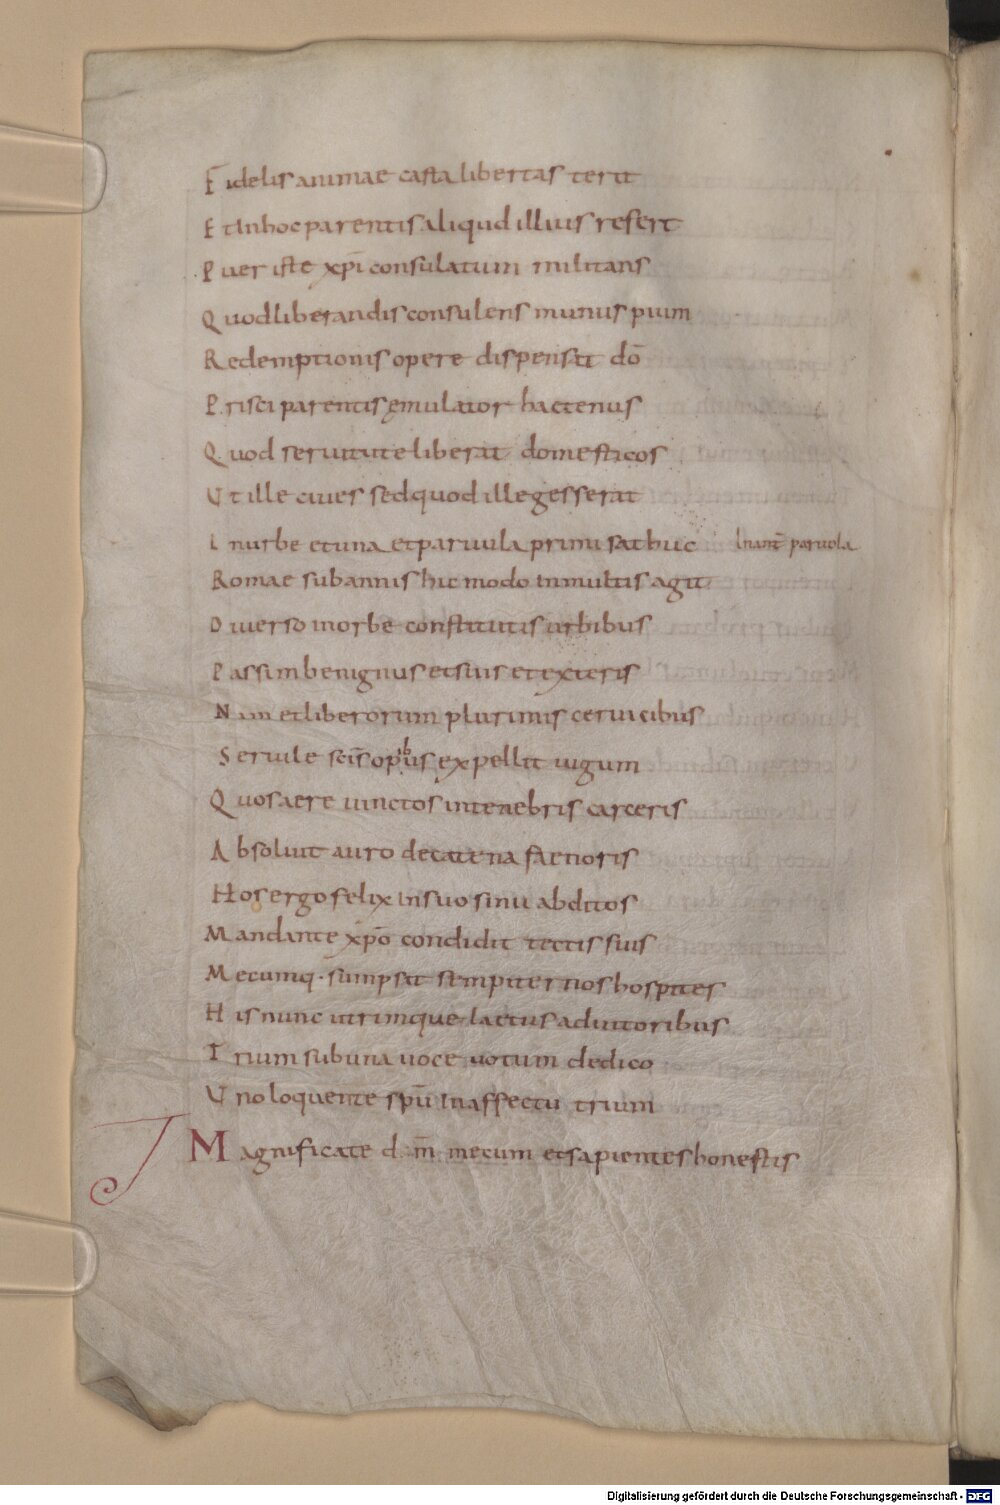 Fidelis animae casta libertas terit
Et In hoc parentis aliqud illius refert
Puer iste xp̄i consulatum militans
Quod liberandis consulens munus pium
Redemptionis opere dispensat dō
Prisci parentis ęmulator hactenus
Quod seruitute liberat domesticos
Ut ille ciues sed quod ille gesserat
In urbe et una et paruula primi sat huc lnam̄ paruola
Romae sub annis hic modo In multis agit
Diuerso in orbe constitutis urbibus
Passim benignus et suis et exteris
Nam et liberorum plurimis ceruicibus
Seruile sc̄is opibus expellit iugum
Quos aere uinctos in tenebris carceris
Absoluit auro de catena faenoris
Hos ergo felix In suo sinu abditos
Mandante xp̄o condidit tectis suis
Mecumq· sumpsit sempiternos hospites
His nunc utrimque laetus adiutoribus
Trium sub una uoce uotum dedico
Uno loquente sp̄u In affectu trium
Magnificate dn̄m mecum et sapientes honestis
Digitalisierung gefördert durch die Deutsche Forschungsgemeinschaft - DFG